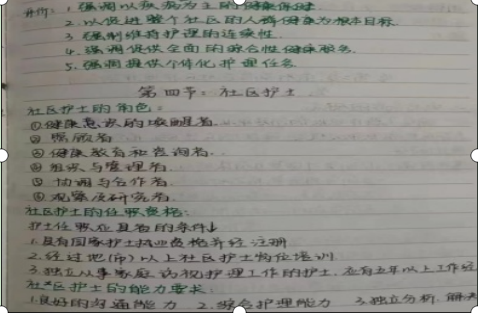 评价：1.强调以疾病为主的健康保健
2.以促进整个社区的人群健康为根本目标.
3.强制维持护理的连续性.
4.强调提供全面的综合性健康服务.
5.强调提供个体化护理任务
第四节：社区护士
社区护士的角色：
①健康意识的唤醒者.
②照顾者
③健康教育和咨询者.
④组织与管理者.
⑤ 协调与合作者.
⑥观察及研究者.
社区护士的任职资格：
护士任职应具备的条件
1.具有国家护士执业资格并经注册
2.经过地(市)以上社区护士岗位培训
3.独立从事家庭访视护理工作的护士，应有五年以上工作经
社区护士的能力要求：
1.良好的沟通能力 2.综合护理能力 3.独立分析.解决